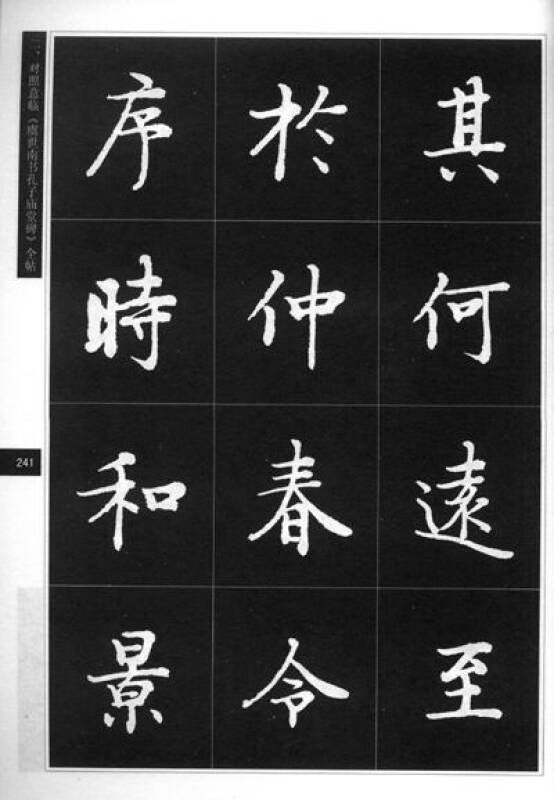 其何遠至
於仲春令
序時和景
二、对照意临《虞世南书孔子庙堂碑》全帖
241